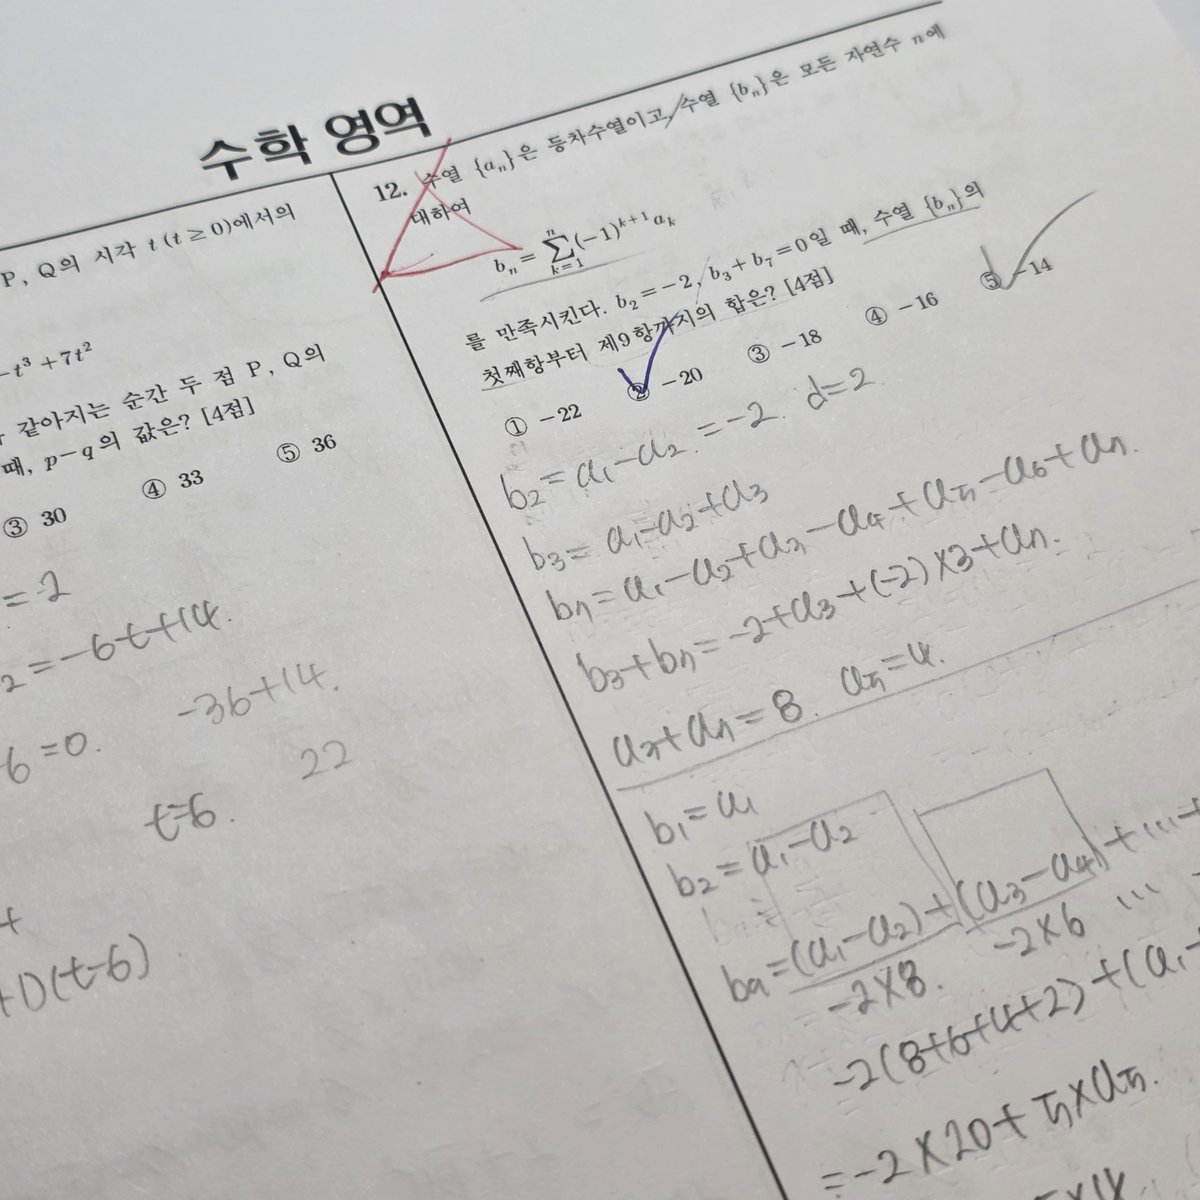 수학 영역
P, Q의 시각 t(t≥0)에서의
-t³+7t²
같아지는 순간 두 점 P, Q의
때, p-q의 값은? [4점]
③ 30 ④ 33 ⑤ 36
=-2
2=-6t+14.
6=0. -36+14.
22
t=6.
+
(t-6)
12. 수열 {aₙ}은 등차수열이고, 수열 {bₙ}은 모든 자연수 n에
대하여
bₙ=∑ₖ₌₁ⁿ(-1)ᵏ⁺¹aₖ
를 만족시킨다. b₂=-2, b₃+b₇=0일 때, 수열 {bₙ}의
첫째항부터 제9항까지의 합은? [4점]
① -22 ② -20 ③ -18 ④ -16 ⑤ -14
b₂=a₁-a₂=-2. d=2
b₃=a₁-a₂+a₃
b₇=a₁-a₂+a₃-a₄+a₅-a₆+a₇.
b₃+b₇=-2+a₃+(-2)×3+a₇.
a₃+a₇=8. a₅=4.
b₁=a₁
b₂=a₁-a₂
b₉=(a₁-a₂)+(a₃-a₄)+...+
-2×8. -2×6 ...
-2(8+6+4+2)+(a₁+
=-2×20+5×a₅.